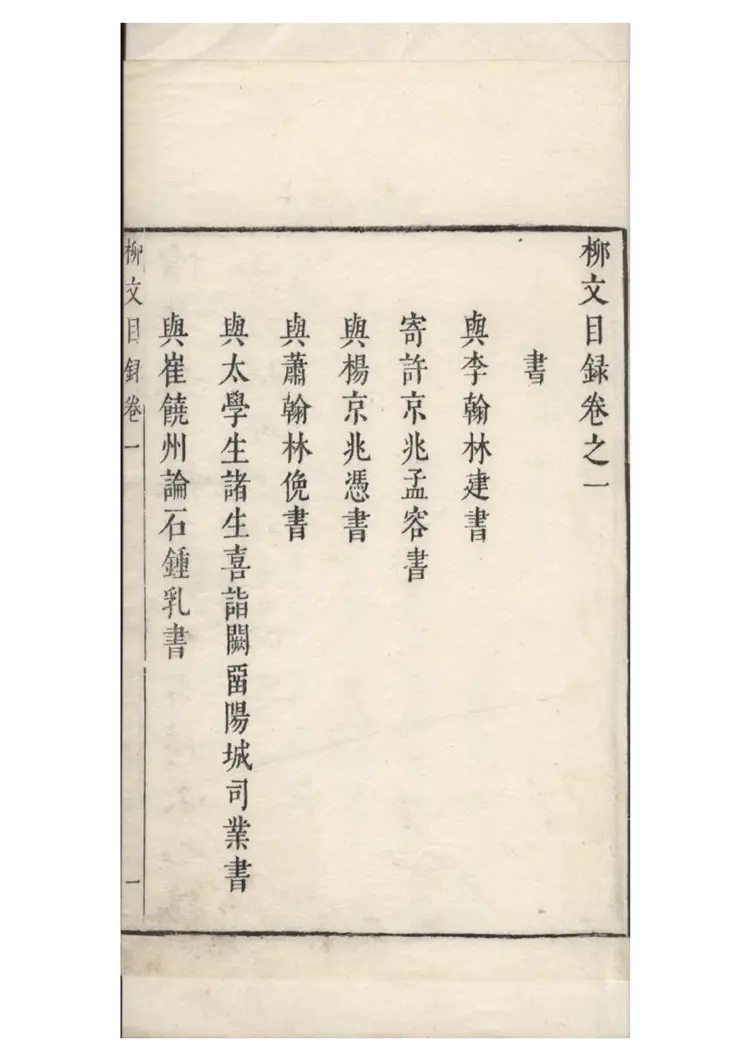 柳文目録卷之一
書
與李翰林建書
寄許京兆孟容書
與楊京兆憑書
與蕭翰林俛書
與太學生諸生喜詣闕畱陽城司業書
與崔饒州論石鍾乳書
柳文目録卷一
一